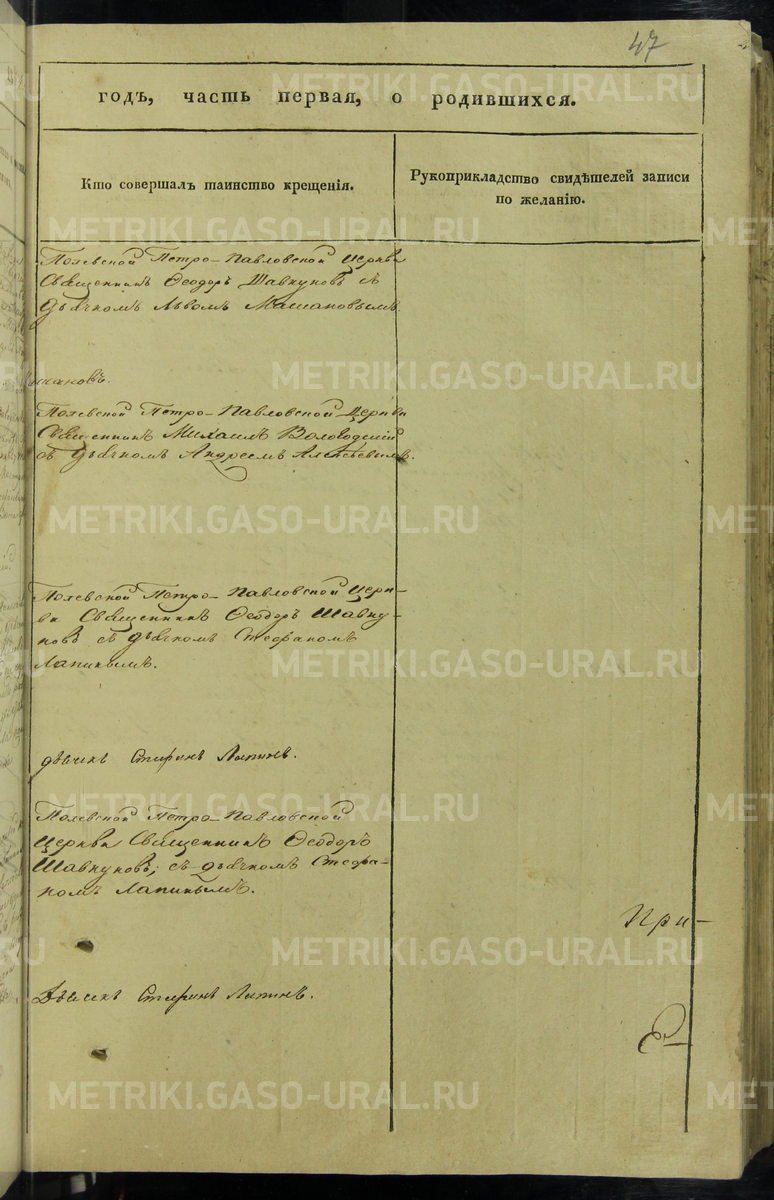 47
годъ, часть первая, о родившихся.
Кто совершалъ таинство крещенія.
Рукоприкладство свидѣтелей записи
по желанію.
Полевской Петро-Павловской Церкви
Священникъ Ѳеодоръ Шавкуновъ съ
дьячкомъ Львомъ
Полевской Петро-Павловской Церкви
Священникъ Михаилъ Вологодскій
съ дьячкомъ Андреемъ Алексѣевымъ.
Полевской Петро-Павловской Церк-
ви Священникъ Ѳеодоръ Шавку-
новъ съ дьячкомъ Стефаномъ
Лапинымъ.
дьячекъ Стефанъ Лапинъ.
Полевской Петро-Павловской
Церкви Священникъ Ѳеодоръ
Шавкуновъ; съ дьячкомъ Стефа-
номъ Лапинымъ.
При-
Дьячекъ Стефанъ Лапинъ.
METRIKI.GASO-URAL.RU